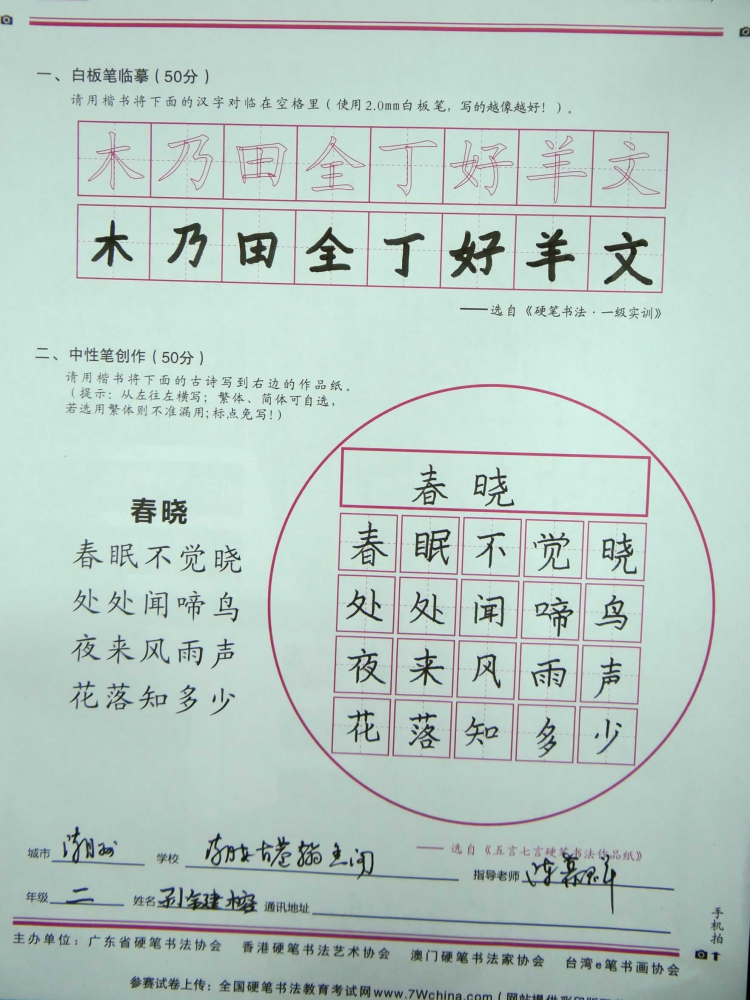 一、白板笔临摹(50分)
请用楷书将下面的汉字对临在空格里(使用2.0mm白板笔,写的越像越好!)。
木乃田全丁好羊文
木乃田全丁好羊文
——选自《硬笔书法·一级实训》
二、中性笔创作(50分)
请用楷书将下面的古诗写到右边的作品纸。
(提示:从左往左横写;繁体、简体可自选,
若选用繁体则不准漏用;标点免写!)
春晓
春眠不觉晓
处处闻啼鸟
夜来风雨声
花落知多少
春晓
春眠不觉晓
处处闻啼鸟
夜来风雨声
花落知多少
——选自《五言七言硬笔书法作品纸》
城市 学校 指导老师
年级 二 姓名 通讯地址
手机拍
主办单位:广东省硬笔书法协会 香港硬笔书法艺术协会 澳门硬笔书法家协会 台湾e笔书画协会
参赛试卷上传:全国硬笔书法教育考试网www.7Wchina.com(网站提供